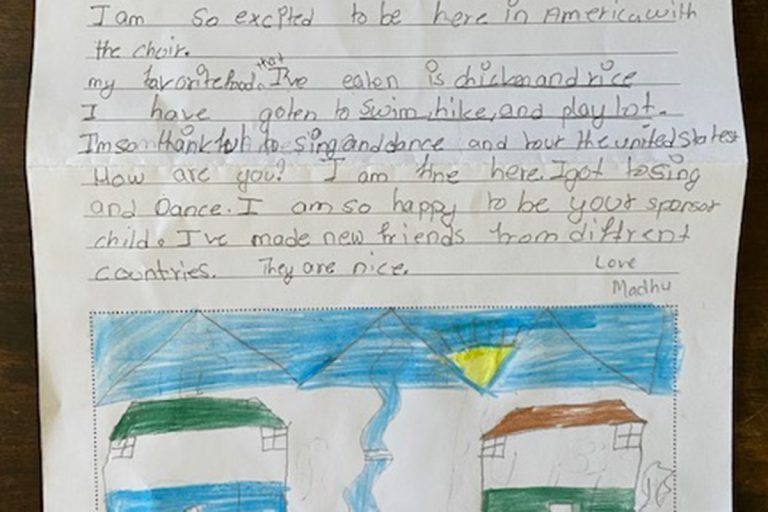 I am so excpted to be here in America with
the choir.
my favorite food that I've eaten is chicken and rice
I have goten to swim, hike, and play lot.
I'm so thankfuh to sing and dance and tour the united states
How are you? I am fine here. I got to sing
and Dance. I am so happy to be your sponsor
child. I've made new friends from diffrent
countries. They are nice.
Love
Madhu